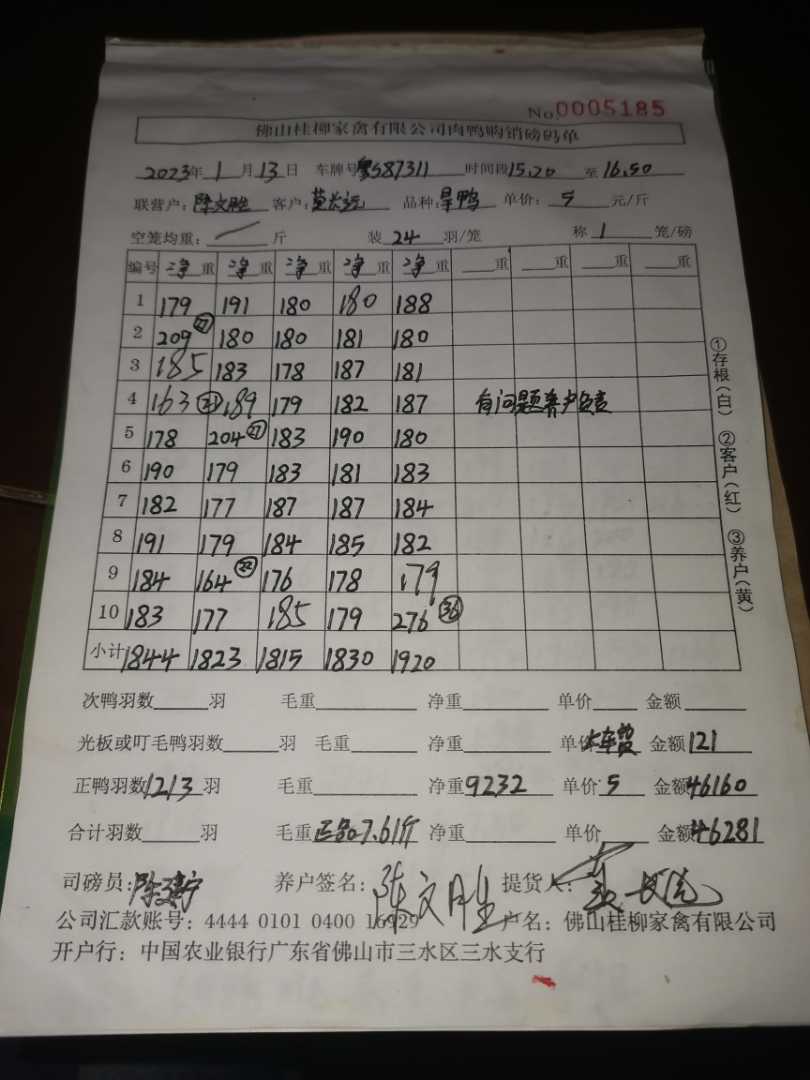 No 0005185
佛山桂柳家禽有限公司肉鸭购销磅码单
2023年 1月13日 车牌号粤S87311 时间段15.20 至16.50
联营户:陈文胜 客户:黄长远 品种:旱鸭 单价:5元/斤
空笼均重: 斤 装24羽/笼 称1笼/磅
编号 净重 净重 净重 净重 净重 重 重 重 重
1 179 191 180 180 188
2 209 27 180 180 181 180
3 185 183 178 187 181
4 163 189 179 182 187 有问题养户负责
5 178 204 27 183 190 180
6 190 179 183 181 183
7 182 177 187 187 184
8 191 179 184 185 182
9 184 164 22 176 178 179
10 183 177 185 179 276 36
小计 1844 1823 1815 1830 1920
①存根(白) ②客户(红) ③养户(黄)
次鸭羽数 羽 毛重 净重 单价 金额
光板或叮毛鸭羽数 羽 毛重 净重 单价 金额121
正鸭羽数1213羽 毛重 净重9232 单价5 金额46160
合计羽数 羽 毛重 7.61斤 净重 单价 金额46281
司磅员: 养户签名:陈文胜 提货人:
公司汇款账号:4444 0101 0400 16929 户名:佛山桂柳家禽有限公司
开户行:中国农业银行广东省佛山市三水区三水支行